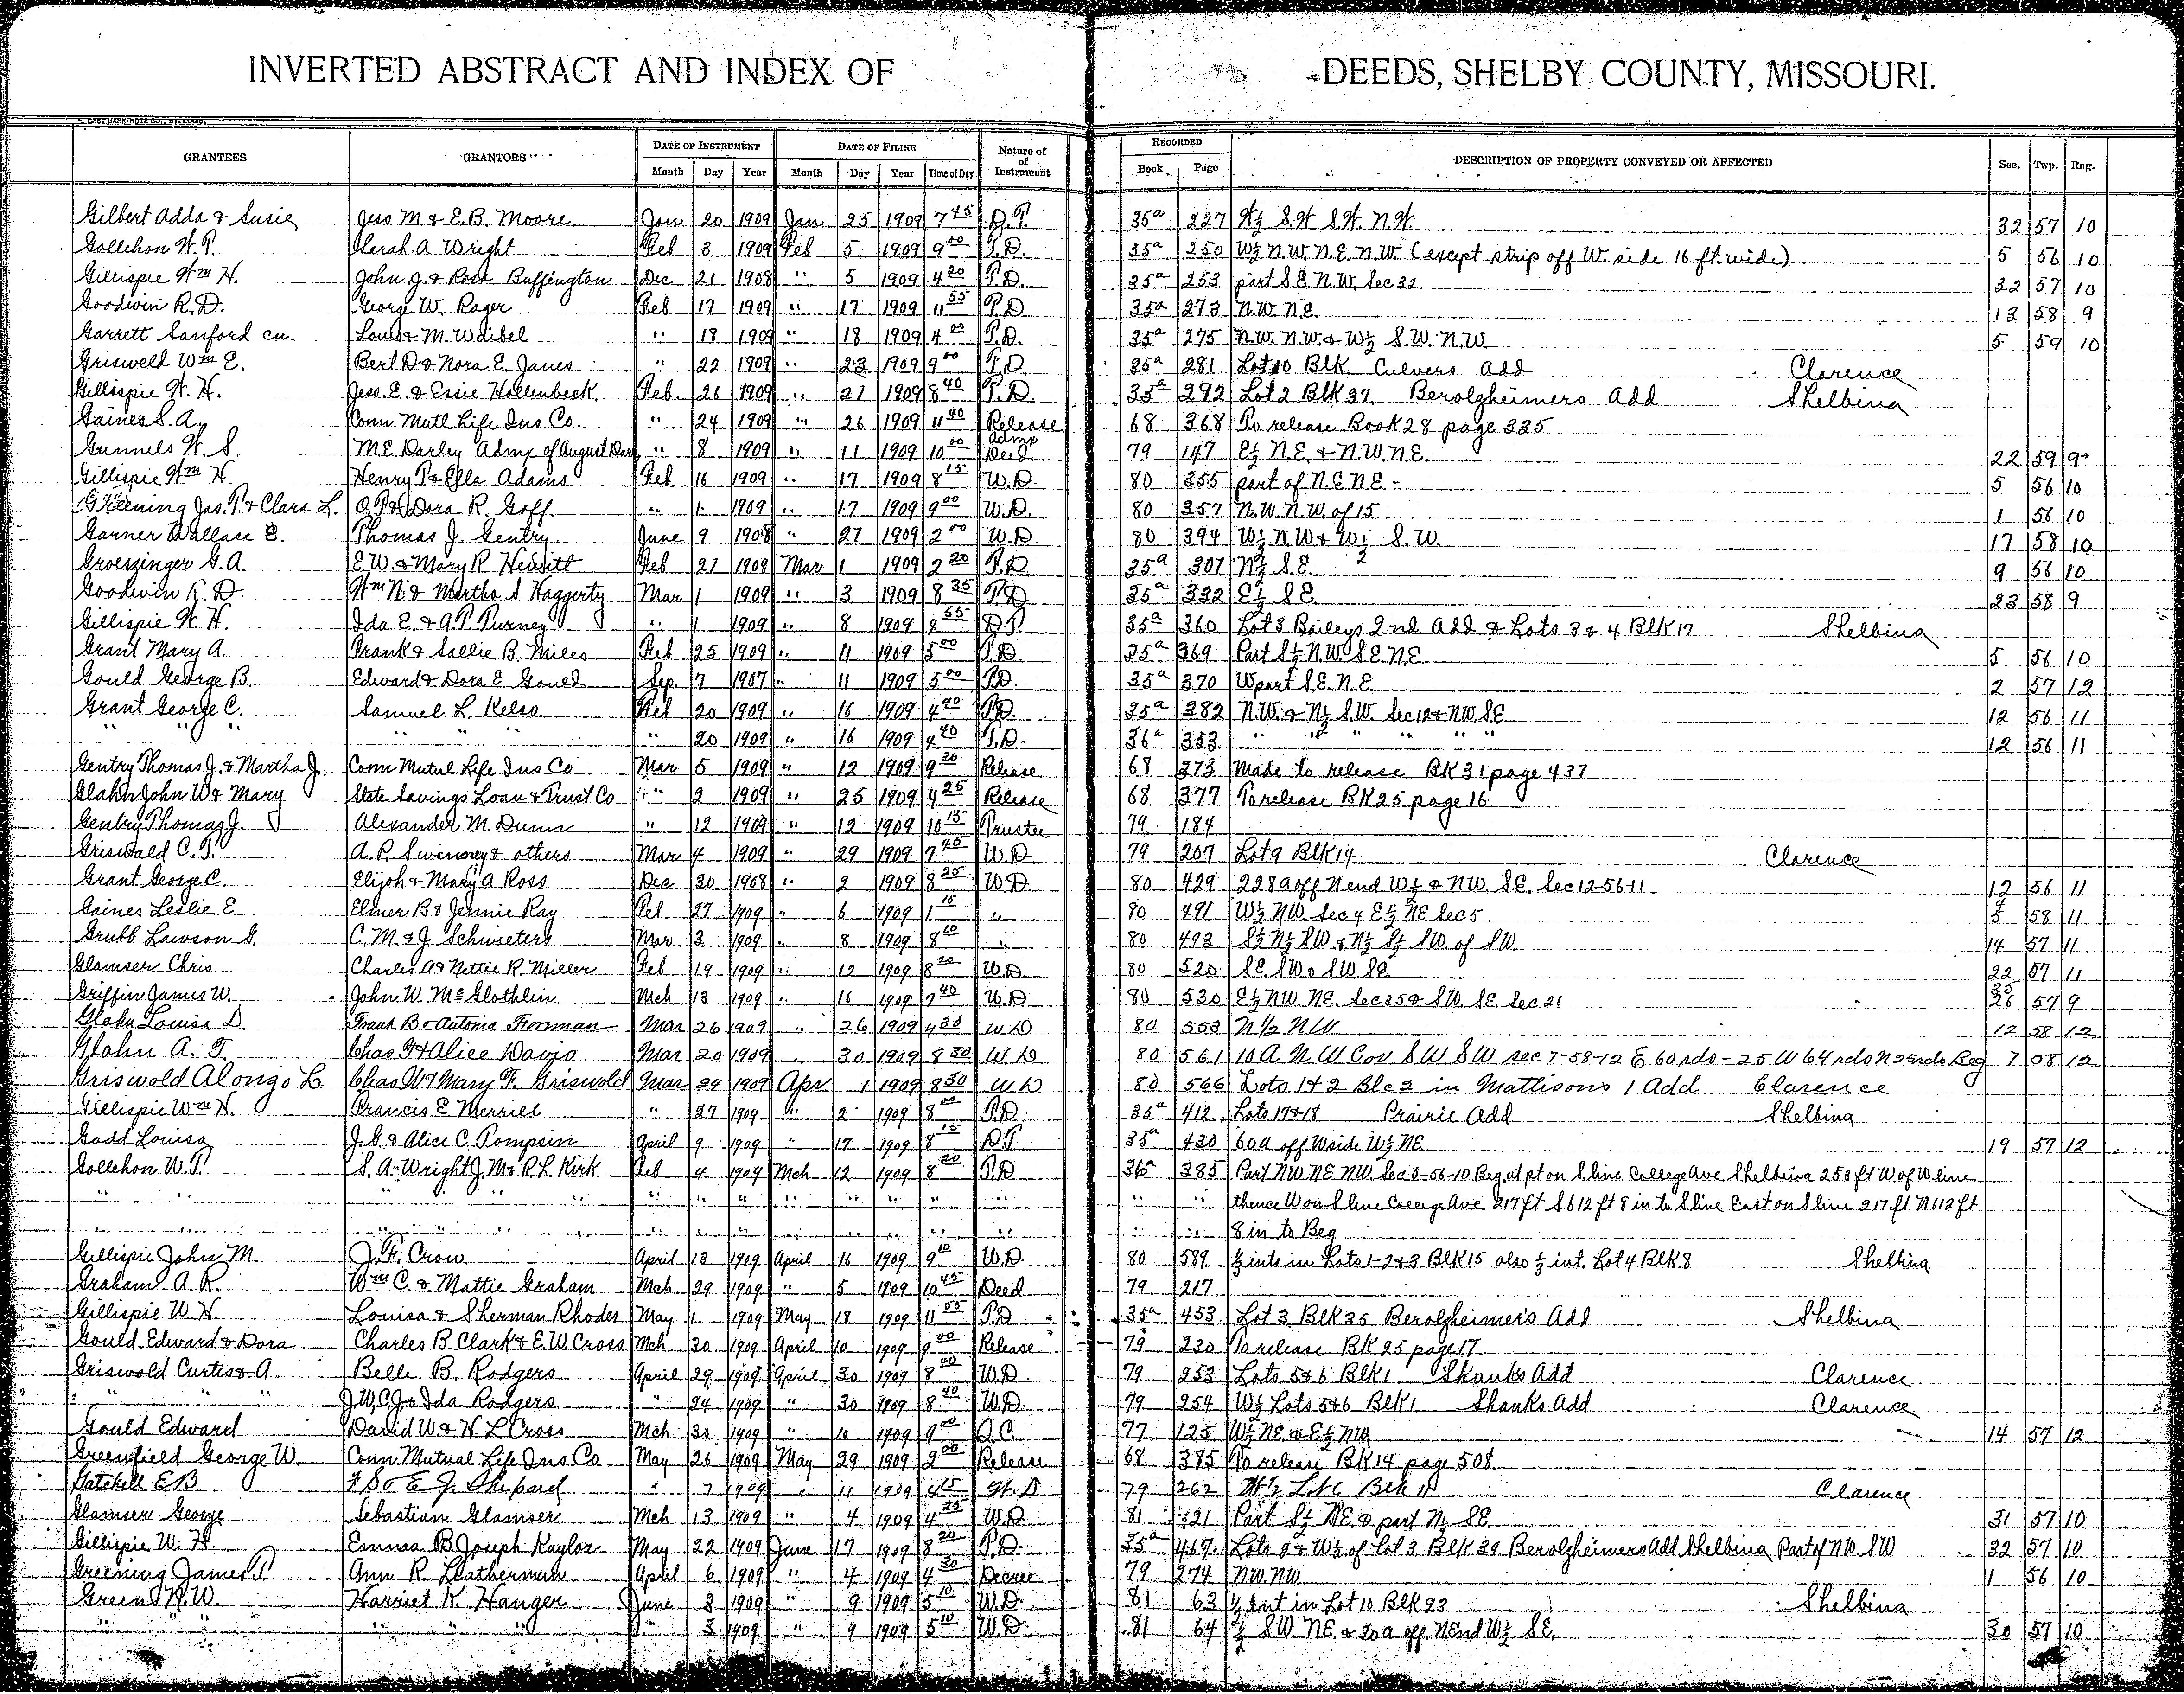 INVERTED ABSTRACT AND INDEX OF DEEDS, SHELBY COUNTY, MISSOURI.
GRANTEES GRANTORS DATE OF INSTRUMENT DATE OF FILING Nature of Instrument RECORDED DESCRIPTION OF PROPERTY CONVEYED OR AFFECTED Sec. Twp. Rng.
Month Day Year Month Day Year Time of Day Book Page
Gilbert Adda & Susie Jess M. & E.B. Moore Jan 20 1909 Jan 25 1909 7 45 D.T. 35a 227 W½ S.W. S.W. N.W. 32 57 10
Gollehon W.T. Sarah A Wright Feb 3 1909 Feb 5 1909 9 00 T.D. 35a 250 W½ N.W. N.E. N.W. (except strip off W. side 16 ft. wide) 5 56 10
Gillispie Wm H. John J. & Rosa Buffington Dec 21 1908 " 5 1909 4 20 T.D. 35a 253 part S.E. N.W. Sec 32 32 57 10
Goodwin R.D. George W. Rager Feb 17 1909 " 17 1909 11 55 T.D. 35a 273 N.W. N.E. 13 58 9
Garrett Sanford cu. Louis & M. Waibel " 18 1909 " 18 1909 4 00 T.D. 35a 275 N.W. N.W. & W½ S.W. N.W. 5 59 10
Griswell Wm E. Bert D & Nora E. Janes " 22 1909 " 23 1909 9 00 T.D. 35a 281 Lot 10 Blk Culvers Add Clarence
Gillispie W. H. Jess. E. & Essie Hollenbeck Feb. 26 1909 " 27 1909 8 40 T.D. 35a 292 Lot 2 Blk 37. Berolzheimers Add Shelbina
Gaines S.A. Conn Mutl Life Ins Co. " 24 1909 " 26 1909 11 40 Release 68 368 To release Book 28 page 335
Gunnels W. S. M.E. Darley Admx of August Dar " 8 1909 " 11 1909 10 00 Admx Deed 79 147 E½ N.E. & N.W. N.E. 22 59 9
Gillispie Wm H. Henry T & Ella Adams Feb 16 1909 " 17 1909 8 15 W.D. 80 355 part of N.E. N.E. 5 56 10
Greening Jas. T. & Clara L. O.T. & Dora R. Goff " 1 1909 " 17 1909 9 00 W.D. 80 357 N.W. N.W. of 15 1 56 10
Garner Wallace E. Thomas J. Gentry June 9 1908 " 27 1909 2 00 W.D. 80 394 W½ N.W & W½ S.W. 17 58 10
Groeszinger G.A. E.W. & Mary R Hewitt Feb 27 1909 Mar 1 1909 2 20 T.D. 35a 307 N½ S.E. 9 56 10
Goodwin R.D. Wm N. & Martha S Haggerty Mar 1 1909 " 3 1909 8 35 T.D 35a 332 E½ S.E. 23 58 9
Gillispie W. H. Ida E. & A.T. Turney " 1 1909 " 8 1909 8 55 D.T. 35a 360 Lot 3 Baileys 2nd Add & Lots 3 & 4 Blk 17 Shelbina
Grant Mary A. Frank & Sallie B. Miles Feb 25 1909 " 11 1909 5 00 T.D 35a 369 Part S½ N.W. S.E. N.E. 5 56 10
Gould George B. Edward & Dora E. Gould Sep. 7 1907 " 11 1909 5 00 T.D. 35a 370 W part S.E. N.E. 2 57 12
Grant George C. Samuel L. Kelso Feb 20 1909 " 16 1909 4 40 T.D. 35a 382 N.W. & N½ S.W. Sec 12 & NW. SE 12 56 11
" " " " " " " 20 1909 " 16 1909 4 40 T.D. 36a 353 " " " " " " 12 56 11
Gentry Thomas J. & Martha J. Conn Mutul Life Ins Co Mar 5 1909 " 12 1909 9 20 Release 68 373 Made to release BK 31 page 437
Glahn John W & Mary State Savings Loan & Trust Co " 2 1909 " 25 1909 4 25 Release 68 377 To release BK 25 page 16
Gentry Thomas J. Alexander M. Dunn " 12 1909 " 12 1909 10 15 Trustee 79 184
Griswald C.T. A.P. Swinney & others Mar 4 1909 " 29 1909 7 45 W.D 79 207 Lot 9 Blk 14 Clarence
Grant George C. Elijah & Mary A Ross Dec 30 1908 " 2 1909 8 25 W.D 80 429 228 a off N end W½ & NW. SE. Sec 12-56-11 12 56 11
Gaines Leslie E. Elmer B & Jennie Ray Feb 27 1909 " 6 1909 1 15 " 80 491 W½ NW Sec 4 E½ NE Sec 5 4 5 58 11
Grubb Lawson G. C.M. & J Schwieters Mar 3 1909 " 8 1909 8 10 " 80 493 S½ N½ SW & N½ S½ SW. of SW 14 57 11
Glamser Chris Charles A & Nettie R. Miller Feb 19 1909 " 12 1909 8 20 W.D 80 520 SE. SW & SW SE 22 57 11
Griffin James W. John W. McGlothlin Mch 13 1909 " 16 1909 7 40 W.D 80 530 E½ NW NE. Sec 35 & SW. SE. Sec 26 35 26 57 9
Glahn Louisa D. Frank B & Antonia Fronman Mar 26 1909 " 26 1909 4 30 W D 80 553 N½ NW 12 58 12
Glahn A. T. Chas F & Alice Davis Mar 20 1909 " 30 1909 8 30 W D 80 561 10 A N W Cor S W S W sec 7-58-12 E 60 rds - 25 W 64 rds N 25 rds Beg 7 58 12
Griswold Alongo L Chas W & Mary F. Griswold Mar 24 1909 Apr 1 1909 8 30 W D 80 566 Lots 1 & 2 Blc 2 in Mattisons 1 Add Clarence
Gillispie Wm H. Francis E Merrill " 27 1909 " 2 1909 8 00 T.D. 35a 412 Lots 17 & 18 Prairie Add Shelbina
Gadd Louisa J.G. & Alice C. Pompsin April 9 1909 " 17 1909 8 15 D.T 35a 430 60 a off W side W½ NE 19 57 12
Gollehon W.T. S.A. Wright J.M & R.L Kirk Feb 4 1909 Mch 12 1909 8 20 T.D 36 385 Part NW NE NW Sec 5-56-10 Beg at pt on S. line College Ave Shelbina 253 ft W of W line
" " " " " " " " " " " " thence W on S line College Ave 217 ft S 612 ft 8 in to S line East on S line 217 ft N 612 ft
" " " " " " " " " " " " 8 in to Beg
Gillispie John M J.F. Crow April 13 1909 April 16 1909 9 10 W.D. 80 589 ½ ints in Lots 1-2 & 3 Blk 15 also ½ int. Lot 4 Blk 8 Shelbina
Graham A.R. Wm C. & Mattie Graham Mch 29 1909 " 5 1909 10 45 Deed 79 217
Gillispie W.H. Louisa & Sherman Rhodes May 1 1909 May 18 1909 11 55 T.D 35a 453 Lot 3 Blk 35 Berolzheimer's Add Shelbina
Gould Edward & Dora Charles B. Clark & E.W. Cross Mch 30 1909 April 10 1909 9 00 Release 79 230 To release BK 25 page 17
Griswold Curtis & A Belle B. Rodgers April 29 1909 April 30 1909 8 40 W.D. 79 253 Lots 5 & 6 Blk 1 Shanks Add Clarence
" " " J.W.C.J. & Ida Rodgers " 24 1909 " 30 1909 8 40 W.D. 79 254 W½ Lots 5 & 6 Blk 1 Shanks Add Clarence
Gould Edward David W & H L Cross Mch 30 1909 " 10 1909 9 00 Q.C. 77 125 W½ NE & E½ NW 14 57 12
Greenfield George W. Conn Mutual Life Ins Co May 26 1909 May 29 1909 2 00 Release 68 385 To release BK 14 page 508
Gatchell E B F S & E J. Shepard " 7 1909 " 11 1909 4 15 W. D 79 262 W½ Lot 6 Blk 11 Clarence
Glamser George Sebastian Glamser Mch 13 1909 " 4 1909 4 25 W.D. 81 521 Part S½ NE & part N½ SE 31 57 10
Gillispie W. H. Emma B Joseph Kaylor May 22 1909 June 17 1909 8 20 T.D. 35a 469 Lots 2 & W½ of Lot 3 Blk 39 Berolzheimers Add Shelbina Part of NW SW 32 57 10
Greening James T. Ann R. Leatherman April 6 1909 " 4 1909 4 30 Decree 79 274 NW NW 1 56 10
Green R.W. Harriet K Hanger June 3 1909 " 9 1909 5 10 W.D. 81 63 ½ int in Lot 10 Blk 93 Shelbina
" " " " " " 3 1909 " 9 1909 5 10 W.D. 81 64 ½ SW NE & 30 a off N End W½ SE. 30 57 10